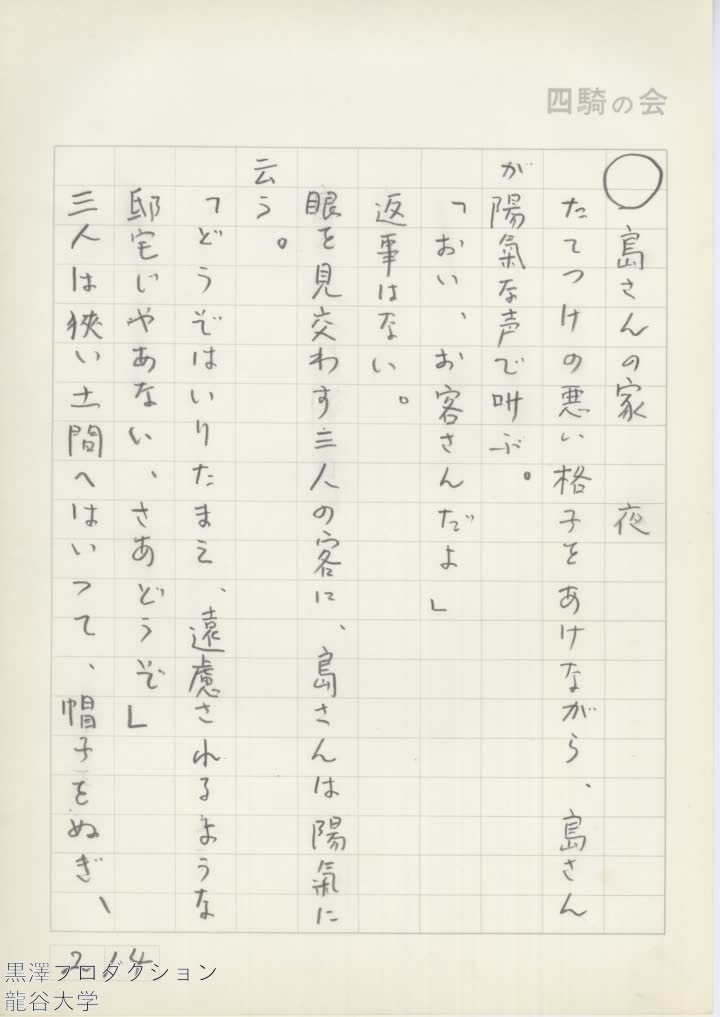 四騎の会
○島さんの家　夜
たてつけの悪い格子をあけながら、島さん
が陽氣な声で叫ぶ。
「おい、お客さんだよ」
返事はない。
眼を見交わす三人の客に、島さんは陽氣に
云う。
「どうぞはいりたまえ、遠慮されるような
邸宅じやあない、さあどうぞ」
三人は狹い土間へはいつて、帽子をぬぎ、
2.14
黒澤プロダクション
龍谷大学